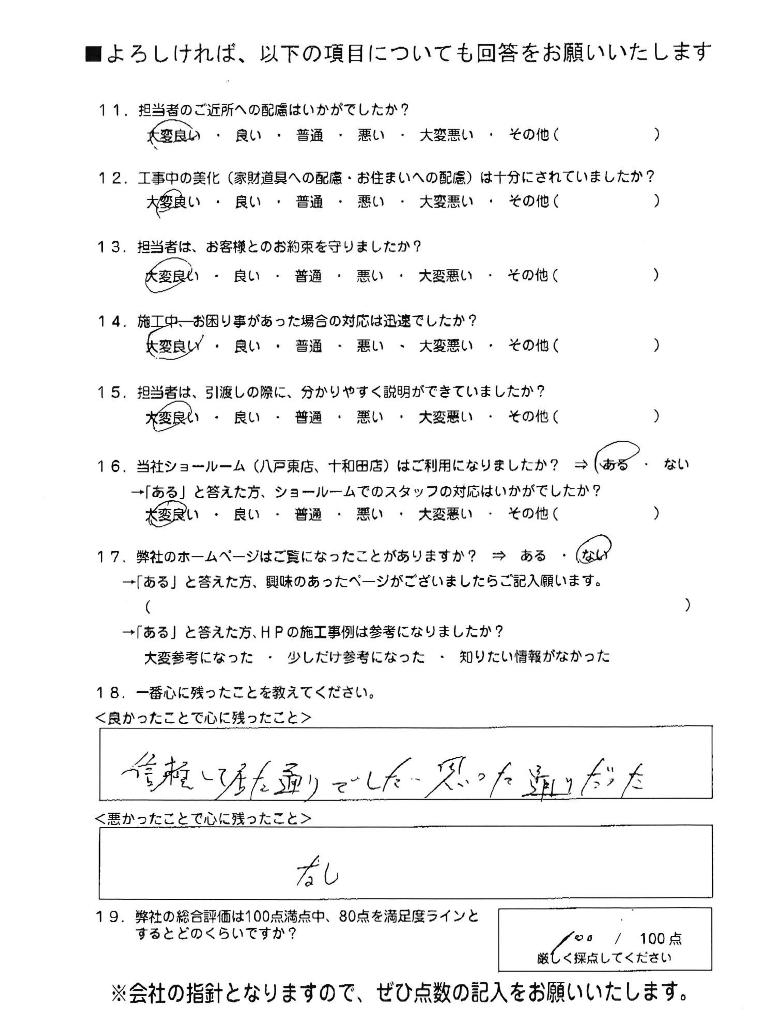 ■よろしければ、以下の項目についても回答をお願いいたします
11．担当者のご近所への配慮はいかがでしたか？
大変良い ・ 良い ・ 普通 ・ 悪い ・ 大変悪い ・ その他（ ）
12．工事中の美化（家財道具への配慮・お住まいへの配慮）は十分にされていましたか？
大変良い ・ 良い ・ 普通 ・ 悪い ・ 大変悪い ・ その他（ ）
13．担当者は、お客様とのお約束を守りましたか？
大変良い ・ 良い ・ 普通 ・ 悪い ・ 大変悪い ・ その他（ ）
14．施工中、お困り事があった場合の対応は迅速でしたか？
大変良い ・ 良い ・ 普通 ・ 悪い 、 大変悪い ・ その他（ ）
15．担当者は、引渡しの際に、分かりやすく説明ができていましたか？
大変良い ・ 良い ・ 普通 ・ 悪い ・ 大変悪い ・ その他（ ）
16．当社ショールーム（八戸東店、十和田店）はご利用になりましたか？ ⇒ ある ・ ない
→「ある」と答えた方、ショールームでのスタッフの対応はいかがでしたか？
大変良い ・ 良い ・ 普通 ・ 悪い ・ 大変悪い ・ その他（ ）
17．弊社のホームページはご覧になったことがありますか？ ⇒ ある ・ ない
→「ある」と答えた方、興味のあったページがございましたらご記入願います。
（ ）
→「ある」と答えた方、HPの施工事例は参考になりましたか？
大変参考になった ・ 少しだけ参考になった ・ 知りたい情報がなかった
18．一番心に残ったことを教えてください。
＜良かったことで心に残ったこと＞
して居た通りでした 思った通りだった
＜悪かったことで心に残ったこと＞
なし
19．弊社の総合評価は100点満点中、80点を満足度ラインと
するとどのくらいですか？
100 / 100点
厳しく採点してください
※会社の指針となりますので、ぜひ点数の記入をお願いいたします。